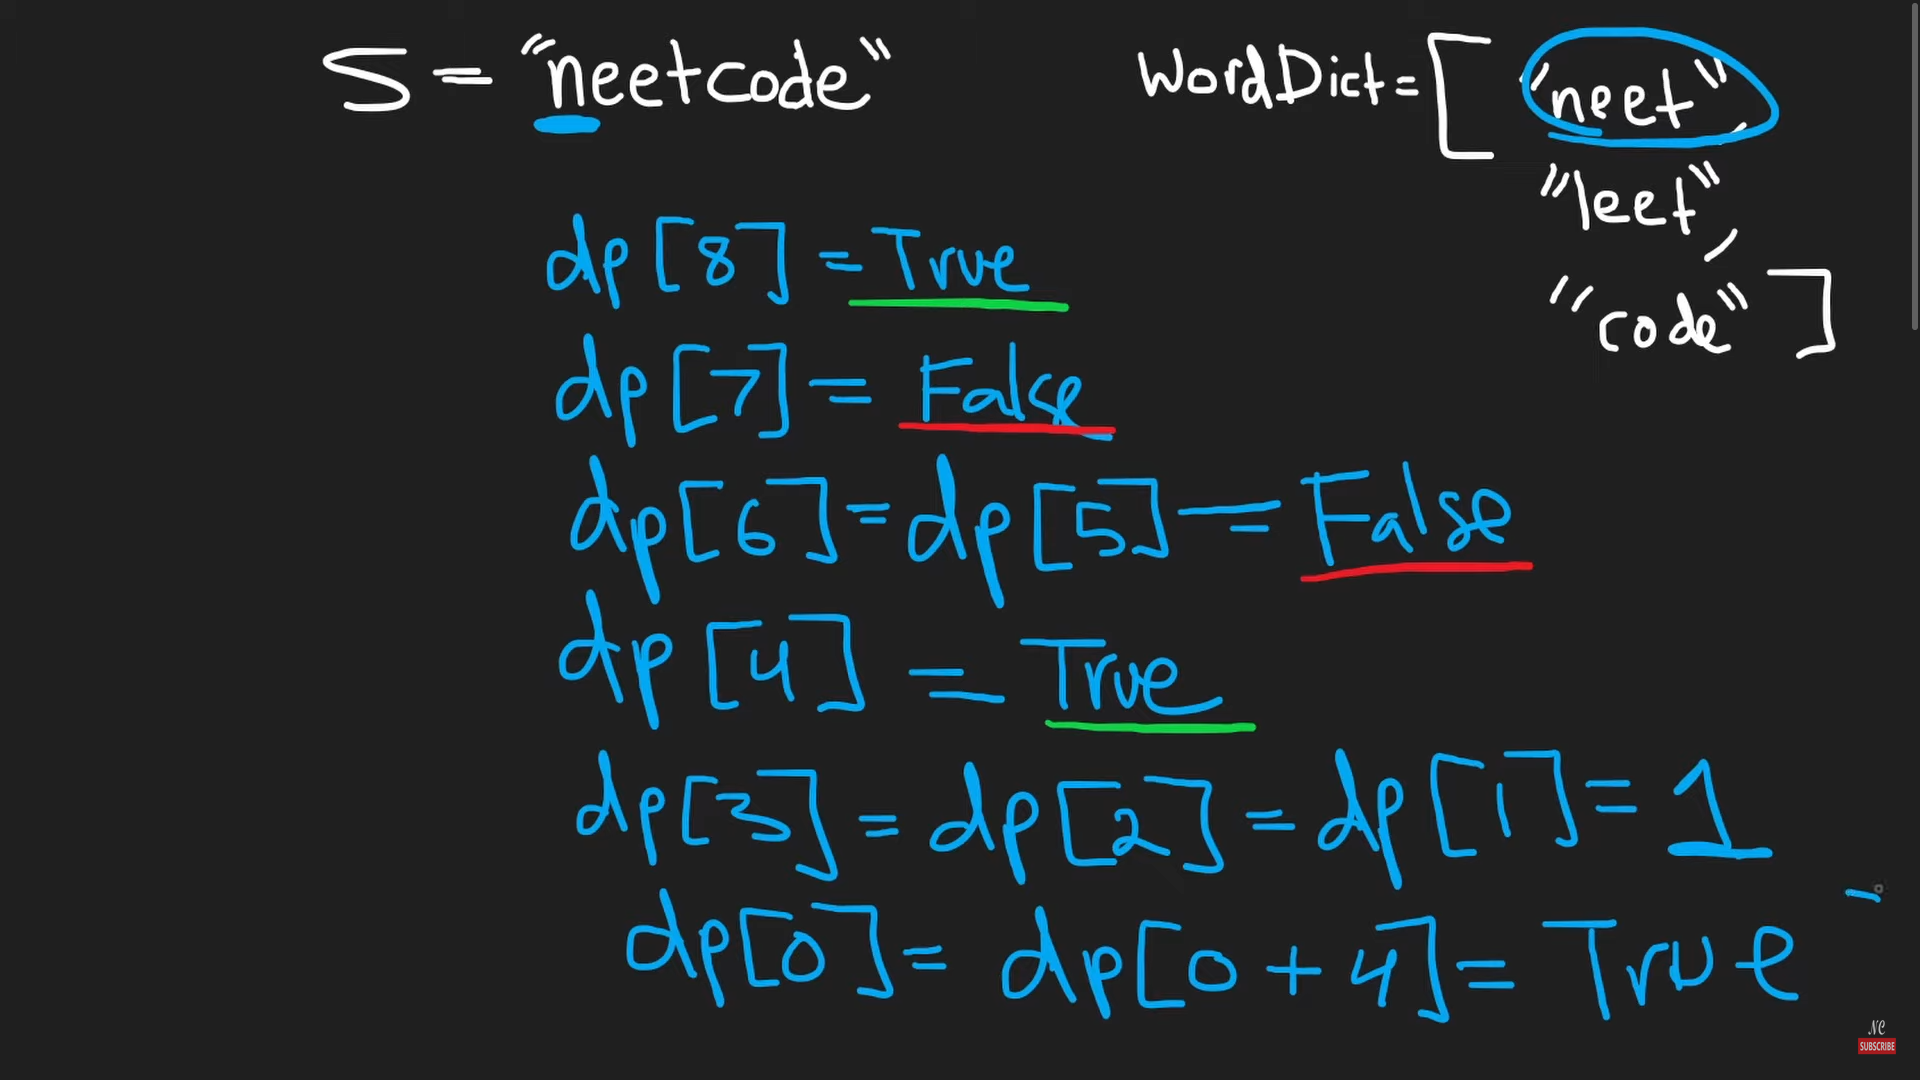 S = "neetcode"
WordDict = [ "neet",
"leet",
"code" ]
dp[8] = True
dp[7] = False
dp[6] = dp[5] = False
dp[4] = True
dp[3] = dp[2] = dp[1] = 1
dp[0] = dp[0 + 4] = True
NC
SUBSCRIBE